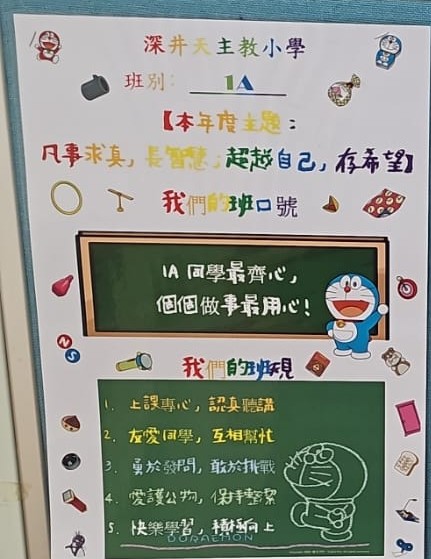 深井天主教小學
班別： 1A
【本年度主題：
凡事求真，長智慧，超越自己，存希望】
我們的班口號
1A 同學最齊心，
個個做事最用心！
我們的班規
1. 上課專心，認真聽講
2. 友愛同學，互相幫忙
3. 勇於發問，敢於挑戰
4. 愛護公物，保持整潔
5. 快樂學習，積極向上
DORAEMON